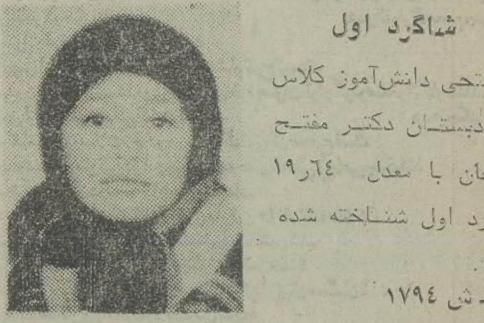 شاگرد اول
تحی دانش‌آموز کلاس
دبستان دکتر مفتح
ان با معدل ۱۹٫۶۴
رد اول شناخته شده
ش ۱۷۹۴